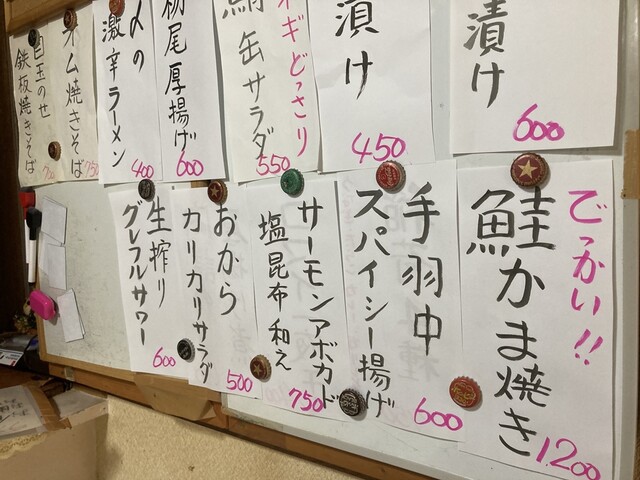 漬け
600
漬け
450
ネギどっさり
鯖缶サラダ
550
栃尾厚揚げ
600
〆の
激辛ラーメン
400
オム焼きそば
750
目玉のせ
鉄板焼きそば
700
でっかい!!
鮭かま焼き
1200
手羽中
スパイシー揚げ
600
サーモンアボカド
塩昆布和え
750
おから
カリカリサラダ
500
生搾り
グレフルサワー
600